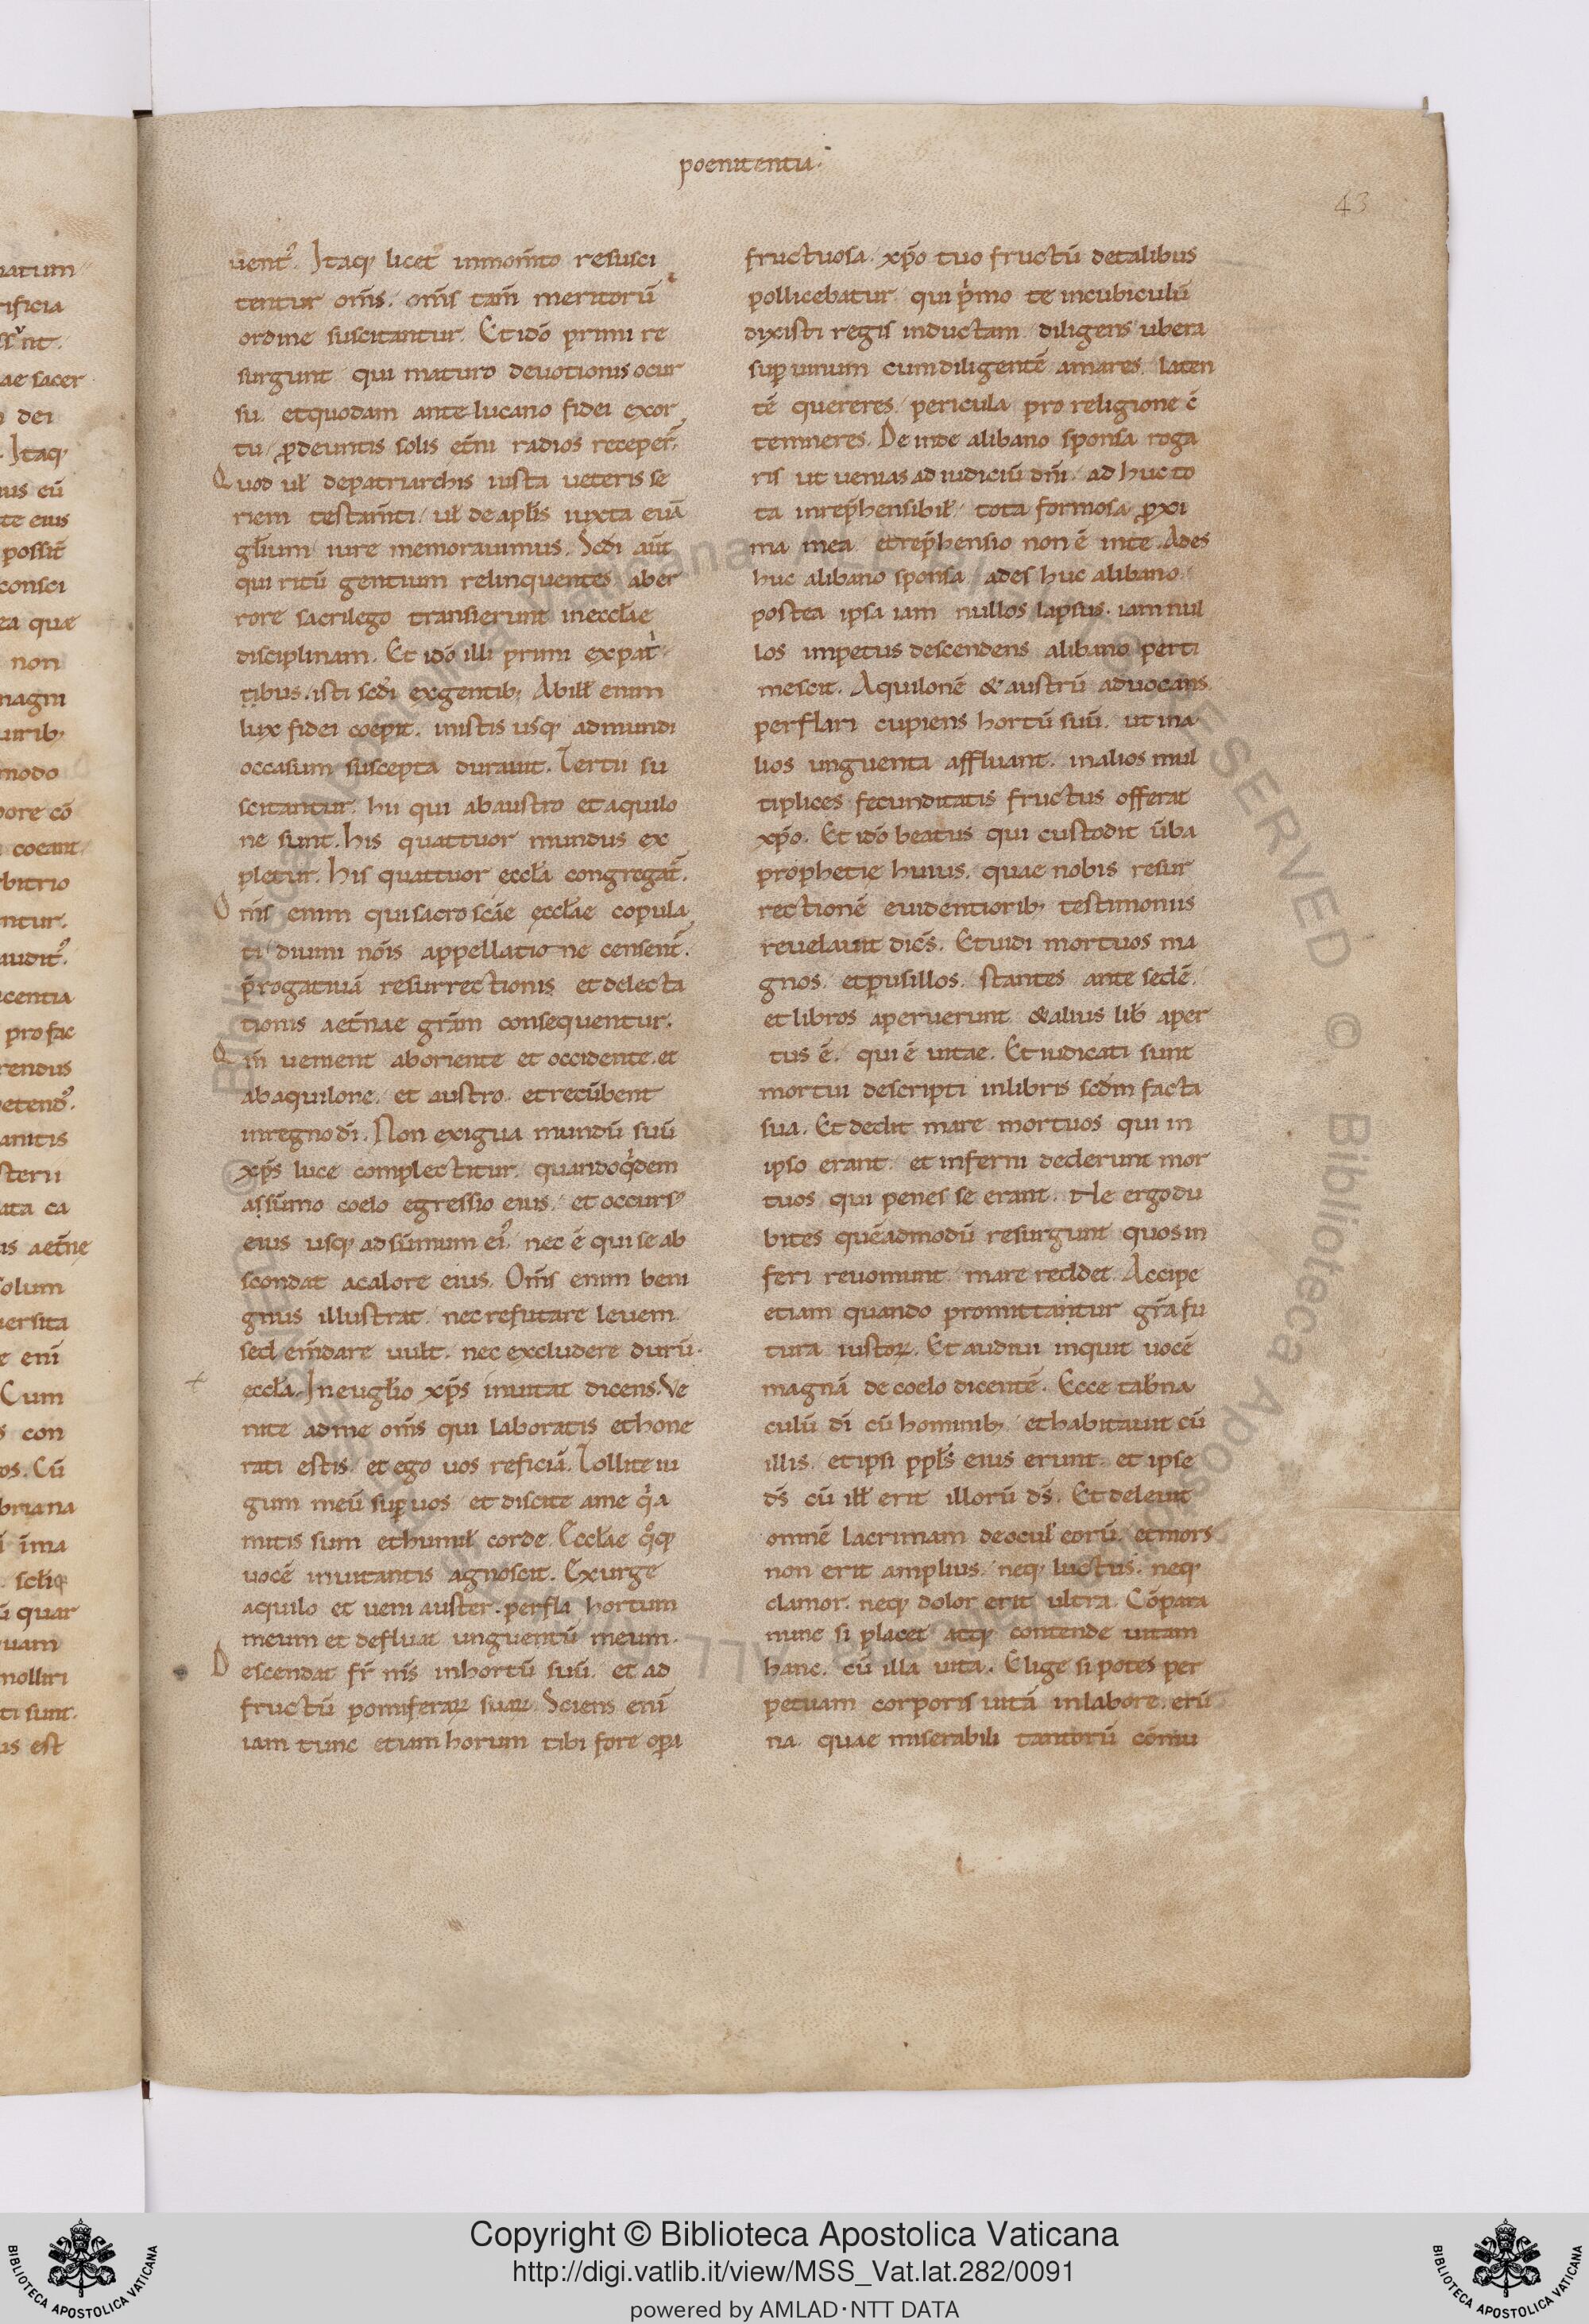 poenitentia.
43
uent᷑. Itaq; licet inmom̄to resusci
tentur om̄s. om̄s tam̄ meritorū
ordine suscitantur. Et idō primi re
surgunt qui maturo deuotionis ocur
su. etquodam ante lucano fidei exor
tu ꝓdeuntis solis et̄ni radios receper̄.
Quod ul̄ depatriarchis iusta ueteris se
riem testam̄ti. ul̄ de apl̄is iuxta euā
gl̄ium iure memorauimus. Scdi aut̄
qui ritū gentium relinquentes aber
rore sacrilego transierunt ineccl̄ae
disciplinam. Et idō illi primi expat
tibus. isti scdi exgentib; Abill̄ enim
lux fidei coepit. inistis usq; admundi
occasum suscepta durauit. Tertii su
scitantur. hii qui abaustro et aquilo
ne sunt. his quattuor mundus ex
pletur. His quattuor eccl̄a congregat̄.
Om̄s enim qui sacro scāe eccl̄ae copula
ti diuini nōis appellatione censent̄.
p̄rogatiuā resurrectionis et delecta
tionis aet̄nae gr̄am consequentur.
Quī uenient aboriente et occidente. et
abaquilone. et austro. etrecūbent
inregno dī. Non exigua mundū suū
xp̄s luce complectitur. quandoqͥdem
assūmo coelo egressio eius. et occursꝰ
eius usq; adsūmum eiꝰ. nec ē qui se ab
scondat acalore eius. Om̄s enim beni
gnus illustrat. nec refutare leuem
sed em̄dare uult. nec excludere durū.
eccl̄a. In eugl̄io xp̄s inuitat dicens. Ve
nite adme om̄s qui laboratis ethone
rati estis. et ego uos reficiā. Tollite iu
gum meū suꝑ uos et discite ame qͥa
mitis sum ethumil̄ corde. Eccl̄ae qͦq;
uocē inuitantis agnoscit. Exurge
aquilo et ueni auster. perfla hortum
meum et defluat unguentū meum.
Descendat fr̄ nīs inhortū suū. et ad
fructū pomiferaꝝ suaꝝ. Sciens enī
iam tunc etiam horum tibi fore oꝑa
fructuosa. xp̄o tuo fructū detalibus
pollicebatur. qui pͥmo te incubiculū
dixisti regis inductam diligens ubera
suꝑ uinum cumdiligentē amares. laten
tē quereres. pericula pro religione c̄
temneres. De inde alibano sponsa roga
ris ut uenias ad iudiciū dn̄i. ad huc to
ta inrep̄hensibil̄. tota formosa ꝓxi
ma mea. etrep̄hensio non ē inte. Ades
huc alibano sponsa. ades huc alibano.
postea ipsa iam nullos lapsus. iam nul
los impetus descendens alibano perti
mescit. Aquilonē & austrū aduocans
perflari cupiens hortū suū. ut ina
lios unguenta affluant. inalios mul
tiplices fecunditatis fructus offerat
xp̄o. Et idō beatus qui custodit ūba
prophetię huius. quae nobis resur
rectionē euidentiorib; testimoniis
reuelauit dicēs. Et uidi mortuos ma
gnos. etpusillos. stantes ante sedē.
et libros aperuerunt. & alius lib̄ aper
tus ē. qui ē uitae. Et iudicati sunt
mortui descripti inlibris scdm facta
sua. Et dedit mare mortuos qui in
ipso erant. et inferni dederunt mor
tuos qui penes se erant. Ne ergo du
bites quēadmodū resurgunt quos in
feri reuomunt mare reddet. Accipe
etiam quando promittantur gr̄a fu
tura iustoꝝ. Et audiui inquit uocē
magnā de coelo dicentē. Ecce tab̄na
culū dī cū hominib; ethabitauit cū
illis. et ipsi ppl̄s eius erunt. et ipse
d̄s cū ill̄ erit illorū d̄s. Et deleuit
omnē lacrimam deocul̄ eorū. etmors
non erit amplius. neq; luctus. neq;
clamor. neq; dolor erit ultra. Cōpara
nunc si placet atq; contende uitam
hanc. cū illa uita. Elige si potes per
petuam corporis uitā inlabore. erū
na. quae miserabili tantorū cōmu
Copyright © Biblioteca Apostolica Vaticana
http://digi.vatlib.it/view/MSS_Vat.lat.282/0091
powered by AMLAD·NTT DATA
BIBLIOTECA APOSTOLICA VATICANA
BIBLIOTECA APOSTOLICA VATICANA